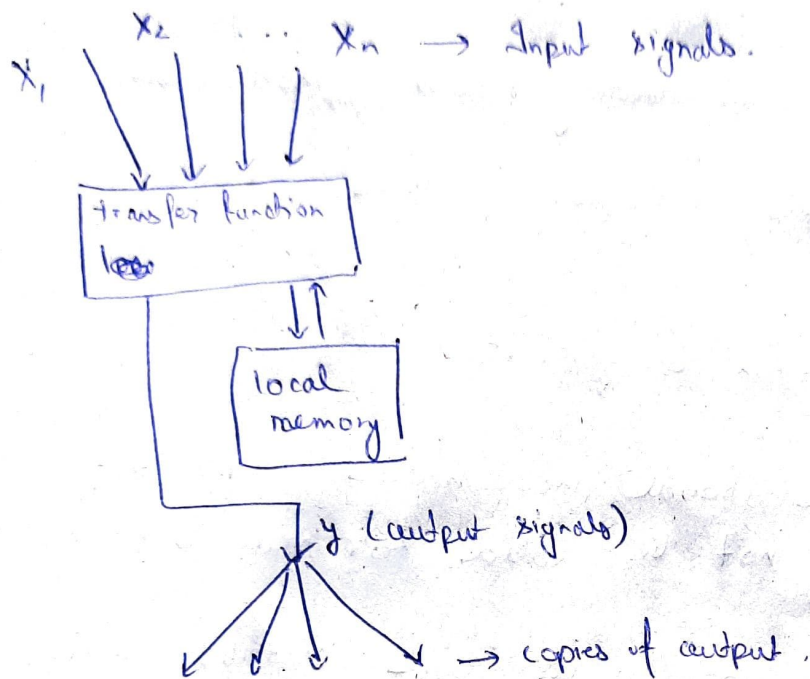 X₁ X₂ ... Xn → Input signals.
transfer function
local
memory
y (output signals)
→ copies of output.